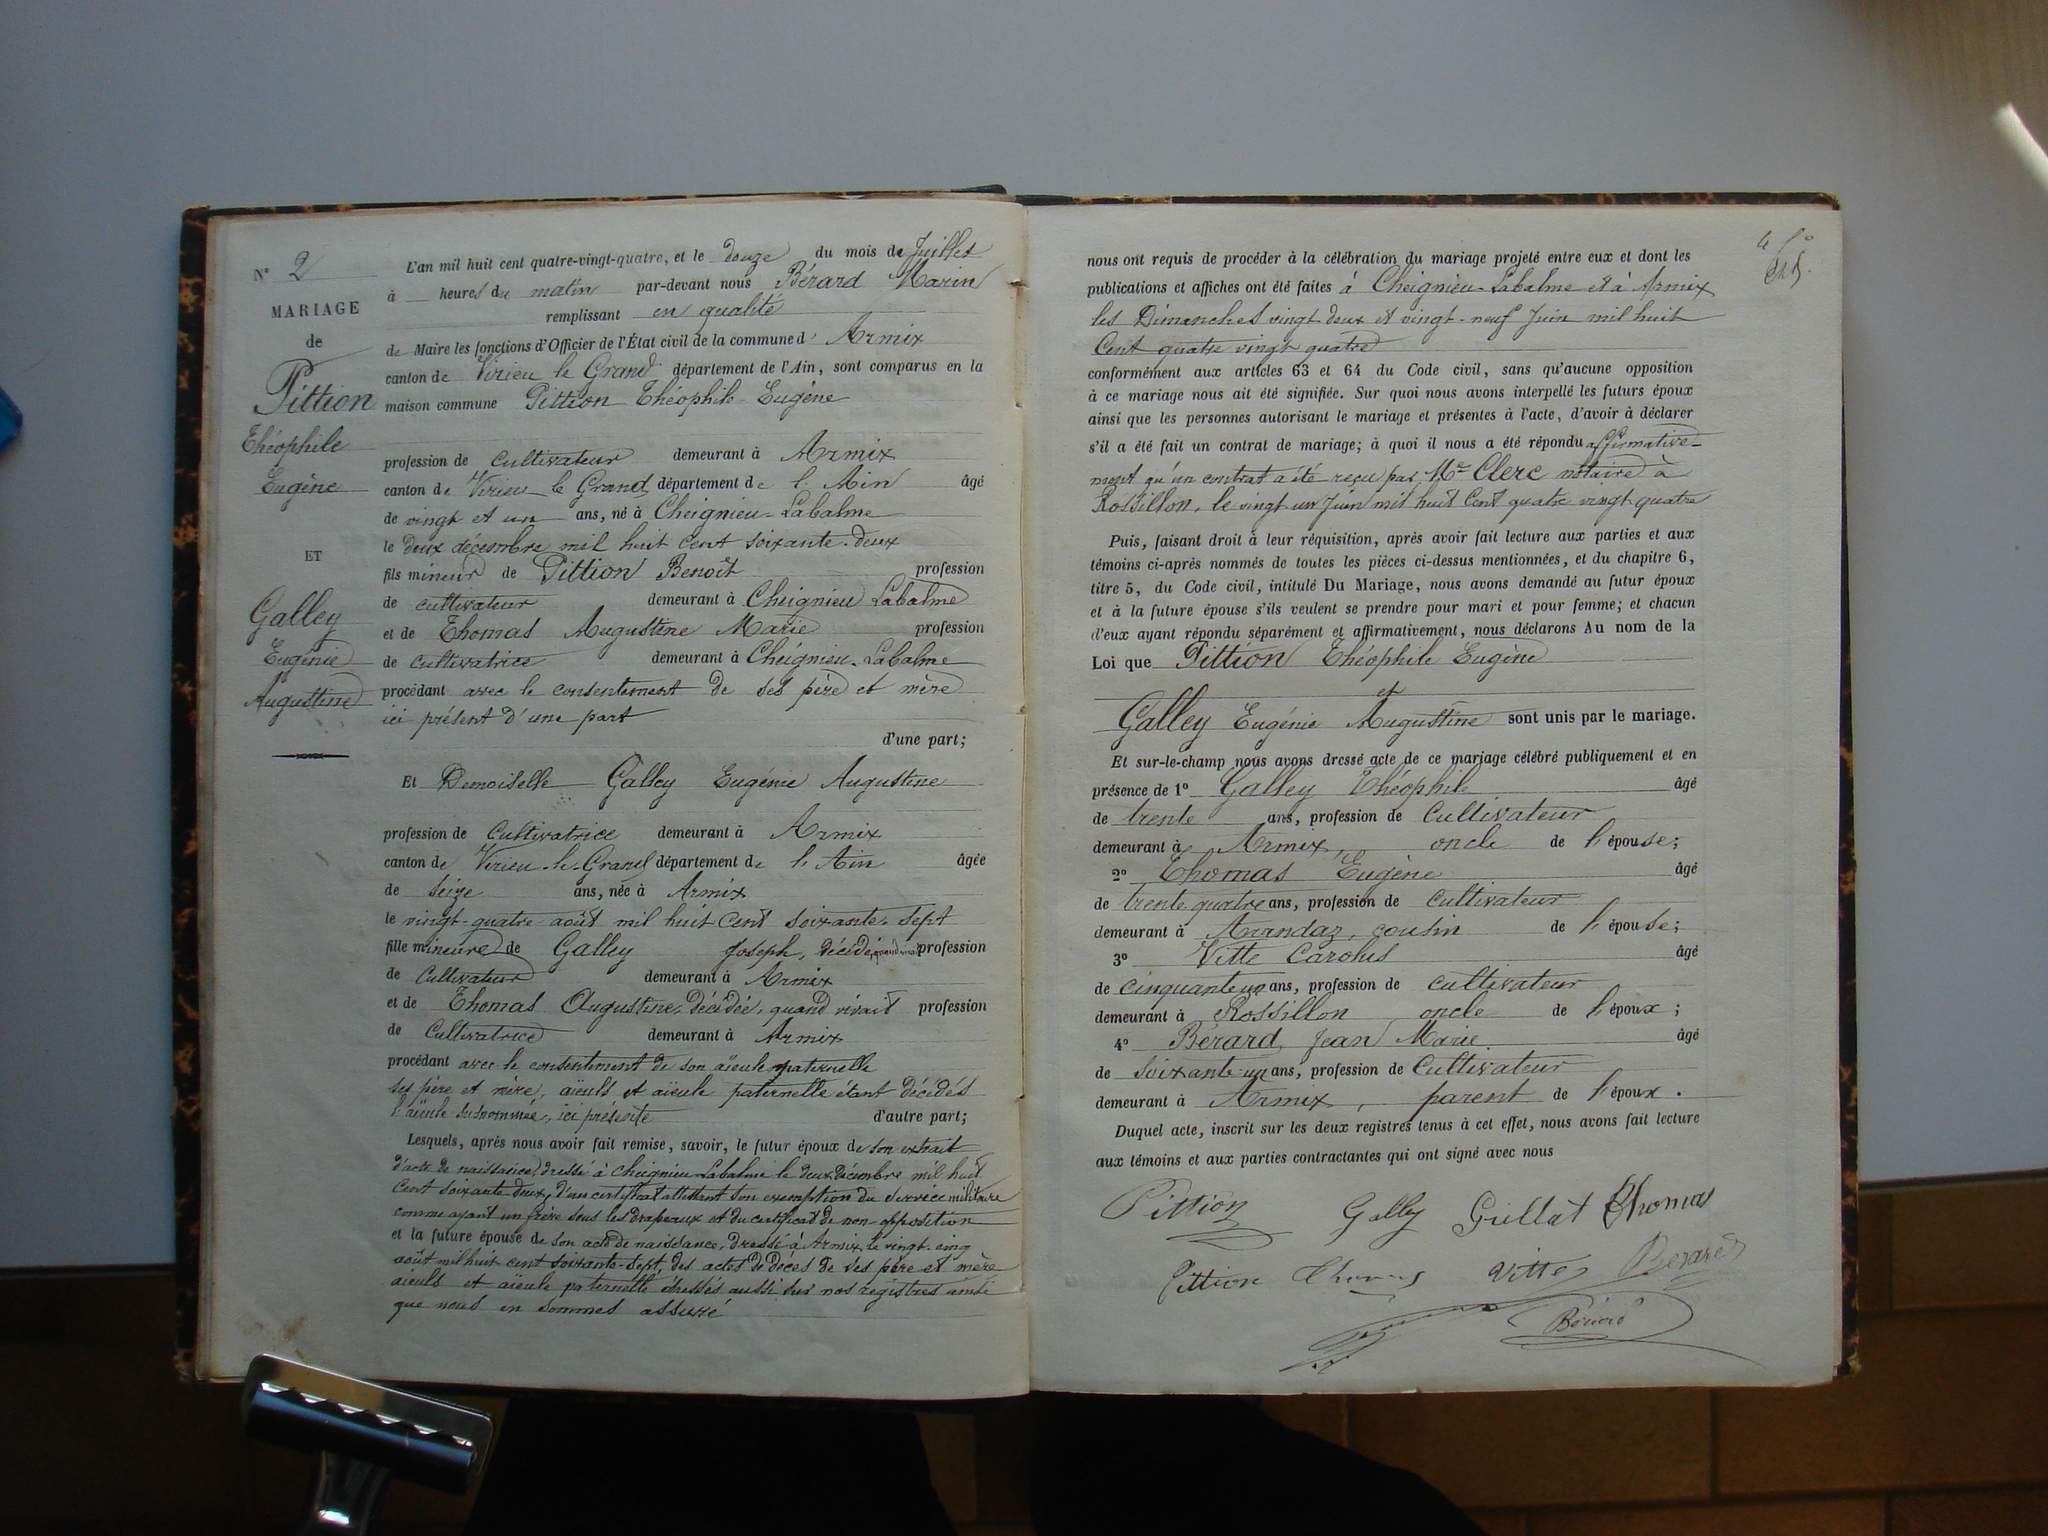 N° 2
MARIAGE
de
Pittion
Théophile
Eugène
ET
Galley
Eugénie
Augustine
L'an mil huit cent quatre-vingt-quatre, et le douze du mois de Juillet
à heures du matin par-devant nous Bérard Marin
remplissant en qualité
de Maire les fonctions d'Officier de l'État civil de la commune d' Armix
canton de Virieu le Grand département de l'Ain, sont comparus en la
maison commune Pittion Théophile Eugène
profession de cultivateur demeurant à Armix
canton de Virieu le Grand département de l'Ain âgé
de vingt et un ans, né à Cheignieu-Labalme
le deux décembre mil huit cent soixante-deux
fils mineur de Pittion Benoît profession
de cultivateur demeurant à Cheignieu Labalme
et de Thomas Augustine Marie profession
de cultivatrice demeurant à Cheignieu-Labalme
procédant avec le consentement de ses père et mère
ici présent d'une part
d'une part;
Et Demoiselle Galley Eugénie Augustine
profession de Cultivatrice demeurant à Armix
canton de Virieu-le-Grand département de l'Ain âgée
de seize ans, née à Armix
le vingt-quatre août mil huit cent soixante-sept
fille mineure de Galley Joseph, décédé, profession
de Cultivateur demeurant à Armix
et de Thomas Augustine, décédée, quand vivait profession
de Cultivatrice demeurant à Armix
procédant avec le consentement de son aïeule maternelle
ses père et mère, aïeuls et aïeule paternelle étant décédés
l'aïeule susnommée, ici présente d'autre part;
Lesquels, après nous avoir fait remise, savoir, le futur époux de son extrait
d'acte de naissance, dressé à Cheignieu-Labalme le deux décembre mil huit
cent soixante-deux, d'un certificat attestant son exemption du service militaire
comme ayant un frère sous les drapeaux et du certificat de non opposition
et la future épouse de son acte de naissance, dressé à Armix le vingt-cinq
août mil huit cent soixante-sept, des actes de décès de ses père et mère
aïeuls et aïeule paternelle dressés aussi sur nos registres ainsi
que nous en sommes assuré
nous ont requis de procéder à la célébration du mariage projeté entre eux et dont les
publications et affiches ont été faites à Cheignieu-Labalme et à Armix
les Dimanches vingt-deux et vingt-neuf Juin mil huit
Cent quatre vingt quatre
conformément aux articles 63 et 64 du Code civil, sans qu'aucune opposition
à ce mariage nous ait été signifiée. Sur quoi nous avons interpellé les futurs époux
ainsi que les personnes autorisant le mariage et présentes à l'acte, d'avoir à déclarer
s'il a été fait un contrat de mariage; à quoi il nous a été répondu affirmative-
ment qu'un contrat a été reçu par Me Clerc notaire à
Rossillon, le vingt un Juin mil huit Cent quatre vingt quatre
Puis, faisant droit à leur réquisition, après avoir fait lecture aux parties et aux
témoins ci-après nommés de toutes les pièces ci-dessus mentionnées, et du chapitre 6,
titre 5, du Code civil, intitulé Du Mariage, nous avons demandé au futur époux
et à la future épouse s'ils veulent se prendre pour mari et pour femme; et chacun
d'eux ayant répondu séparément et affirmativement, nous déclarons Au nom de la
Loi que Pittion Théophile Eugène
et
Galley Eugénie Augustine sont unis par le mariage.
Et sur-le-champ nous avons dressé acte de ce mariage célébré publiquement et en
présence de 1° Galley Théophile âgé
de trente ans, profession de Cultivateur
demeurant à Armix, oncle de l'épouse;
2° Thomas Eugène âgé
de trente quatre ans, profession de cultivateur
demeurant à Arandaz, cousin de l'épouse;
3° Vitte Carolus âgé
de cinquante un ans, profession de cultivateur
demeurant à Rossillon oncle de l'époux;
4° Bérard Jean Marie âgé
de soixante un ans, profession de Cultivateur
demeurant à Armix, parent de l'époux.
Duquel acte, inscrit sur les deux registres tenus à cet effet, nous avons fait lecture
aux témoins et aux parties contractantes qui ont signé avec nous
Pittion Gally Guillat Thomas
Pittion Thomas Vitte Berard
Bérard